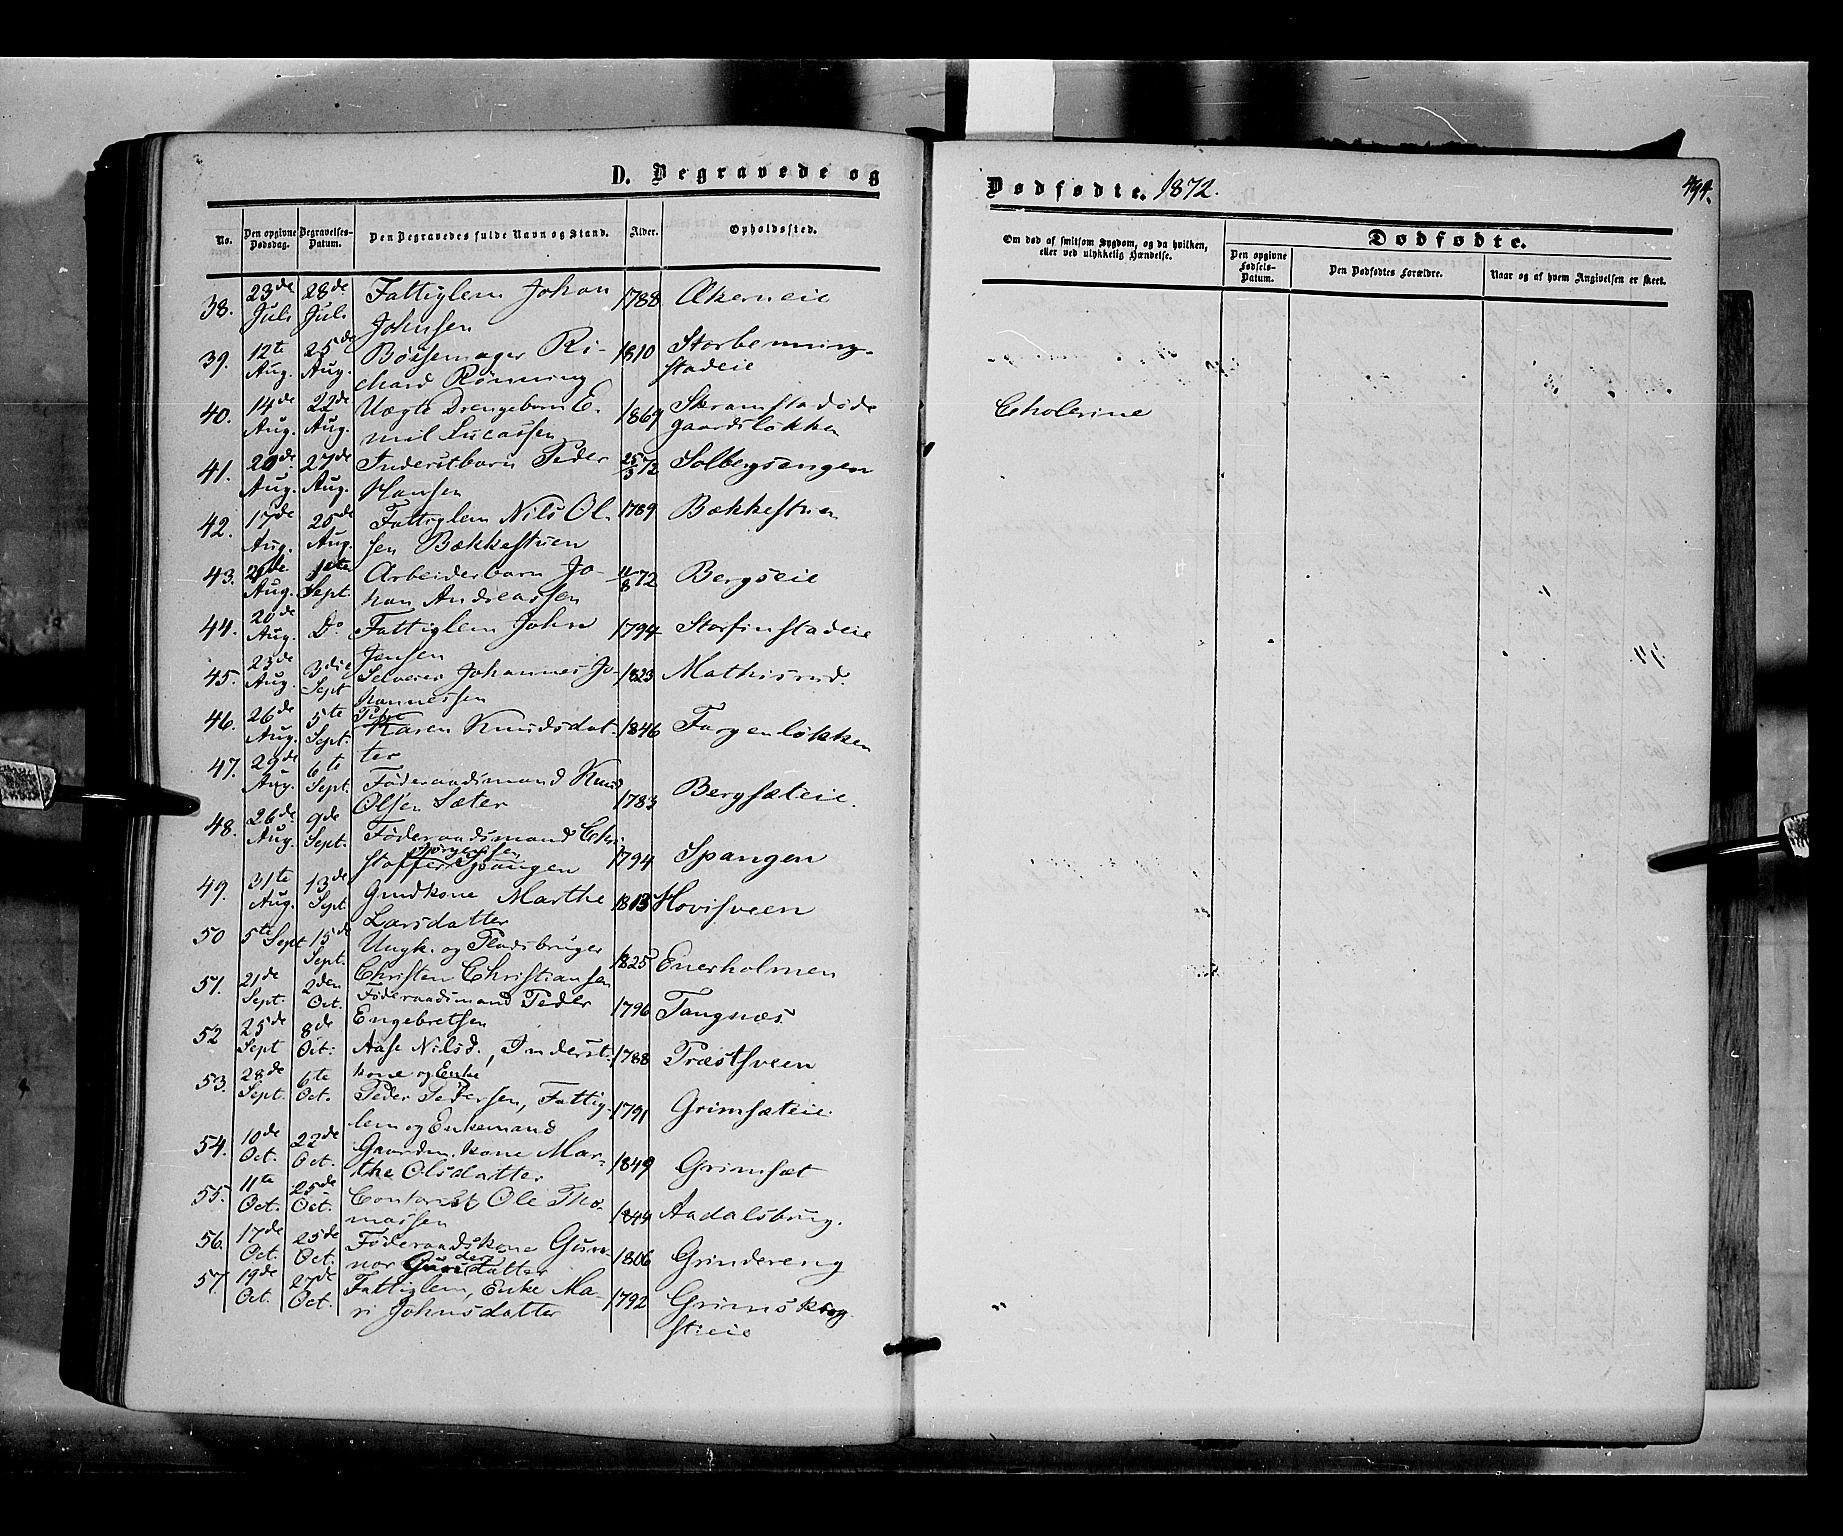 D. Begravede og
No.
Den opgivne Dødsdag.
Begravelses-Datum.
Den Begravedes fulde Navn og Stand.
Alder.
Opholdssted.
38. 23de Juli 28de Juli Fattiglem Johan Johnsen 1788 Akerneie
39. 12te Aug. 25de Aug. Bøssemager Richard Rønning 1810 Storbenningstadeie
40. 14de Aug. 22de Aug. Uægte Drengebarn Emil Lucassen 1869 Skramstadødegaardsløkken
41. 20de Aug. 27de Aug. Inderstbarn Peder Hansen 25/3 72 Solbergsengen
42. 17de Aug. 25de Aug. Fattiglem Nils Olsen Bækkestuen 1789 Bækkestuen
43. Aug. 1ste Sept Arbeiderbarn Johan Andreassen 11/8 72 Bergseie
44. 20de Aug. Do Fattiglem John Jensen 1794 Storfinstadeie
45. 23de Aug. 3die Sept Selveier Johannes Johannessen 1823 Mathisrud.
46. 26de Aug. 5te Sept. Pige Karen Knudsdatter 1846 Fargenløkken
47. 29de Aug. 6te Sept. Føderaadsmand Knud Olsen Sæter 1783 Bergsæteie.
48. 26de Aug. 9de Sept. Føderaadsmand Christoffer Jørgensen Spangen 1794 Spangen
49. 31te Aug. 13de Sept Gmdkone Marthe Larsdatter 1813 Hovisveen
50 5te Sept 15de Sept. Ungk. og Pladsbruger Christen Christiansen 1825 Enerholmen
51. 21de Sept. 2den Oct. Føderaadsmand Peder Engebretsen 1796 Tangnæs.
52 25de Sept 8de Oct: Aase Nilsd., Inderstkone og Enke 1788 Præstsveen
53. 28de Sept. 6te Oct. Peder Pedersen, Fattiglem og Enkemand 1791 Grimsæteie.
54. 10de Oct. 22de Oct. Gaardm.kone Marthe Olsdatter 1849 Grimsæt
55. 11te Oct. 25de Oct. Contorist Ole Thomassen 1844 Aadalsbrug.
56. 17de Oct. 25de Oct. Føderaadskone Gunnor datter 1806 Grindereng
57. 19de Oct. 27de Oct. Fattiglem, Enke Mari Johnsdatter 1792 Grimskrogstieie
Dødfødte. 1872.
494.
Om død af smitsom Sygdom, og da hvilken,
eller ved ulykkelig Hændelse.
Dødfødte.
Den opgivne Fødsels-Datum.
Den Dødfødtes Forældre.
Naar og af hvem Angivelsen er skeet.
Cholerine